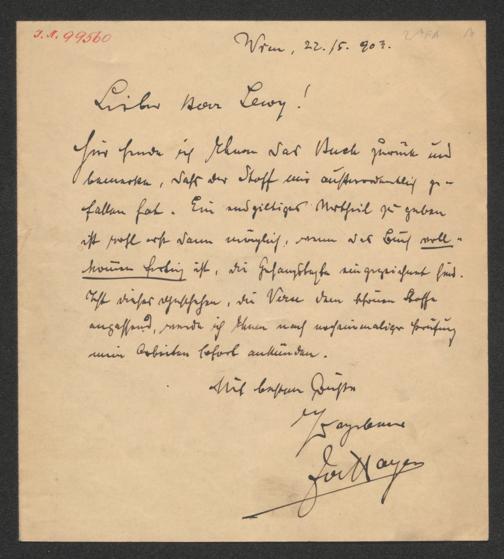 I.N. 99560
Wien, 22./5. 903.
Lieber Herr Lewy!
Hier sende ich Ihnen das Buch zurück und
bemerke, daß der Stoff mir außerordentlich ge-
fallen hat. Ein endgiltiges Urtheil zu geben
ist wohl erst dann möglich, wenn das Buch voll-
kommen fertig ist, die Gesangstexte eingezeichnet sind.
Ist dieses geschehen, die dem Stoffe
anpassend, werde ich Ihnen nach nochmaliger Prüfung
mein Arbeiten sofort ankünden.
Mit besten Grüßen
Ergebener
Jos Hayer